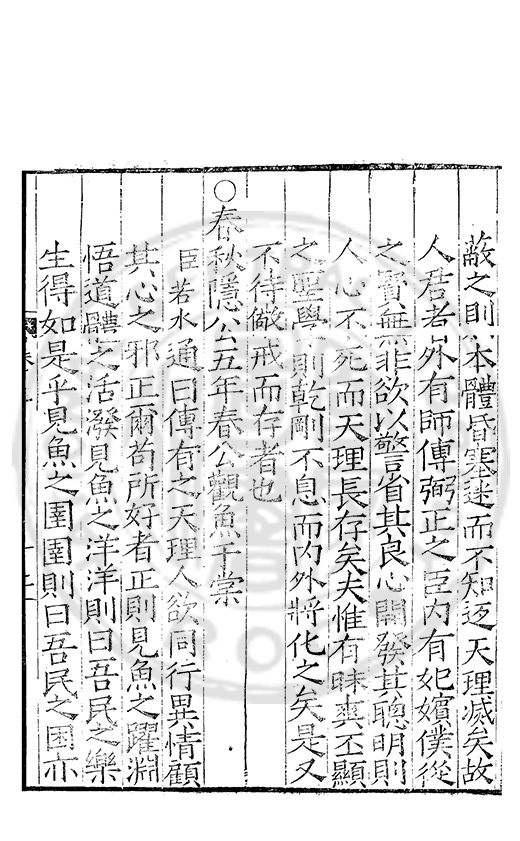 蔽之則本體昏塞迷而不知返天理滅矣故
人君者外有師傅弼正之臣内有妃嬪僕從
之賢無非欲以警省其良心開發其聰明則
人心不死而天理長存矣夫惟有昧爽丕顯
之聖學則乾剛不息而内外將化之矣是又
不待儆戒而存者也
○春秋隱公五年春公觀魚于棠
臣若水通曰傳有之天理人欲同行異情顧
其心之邪正爾苟所好者正則見魚之躍淵
悟道體之活潑見魚之洋洋則曰吾民之樂
生得如是乎見魚之圉圉則曰吾民之困亦